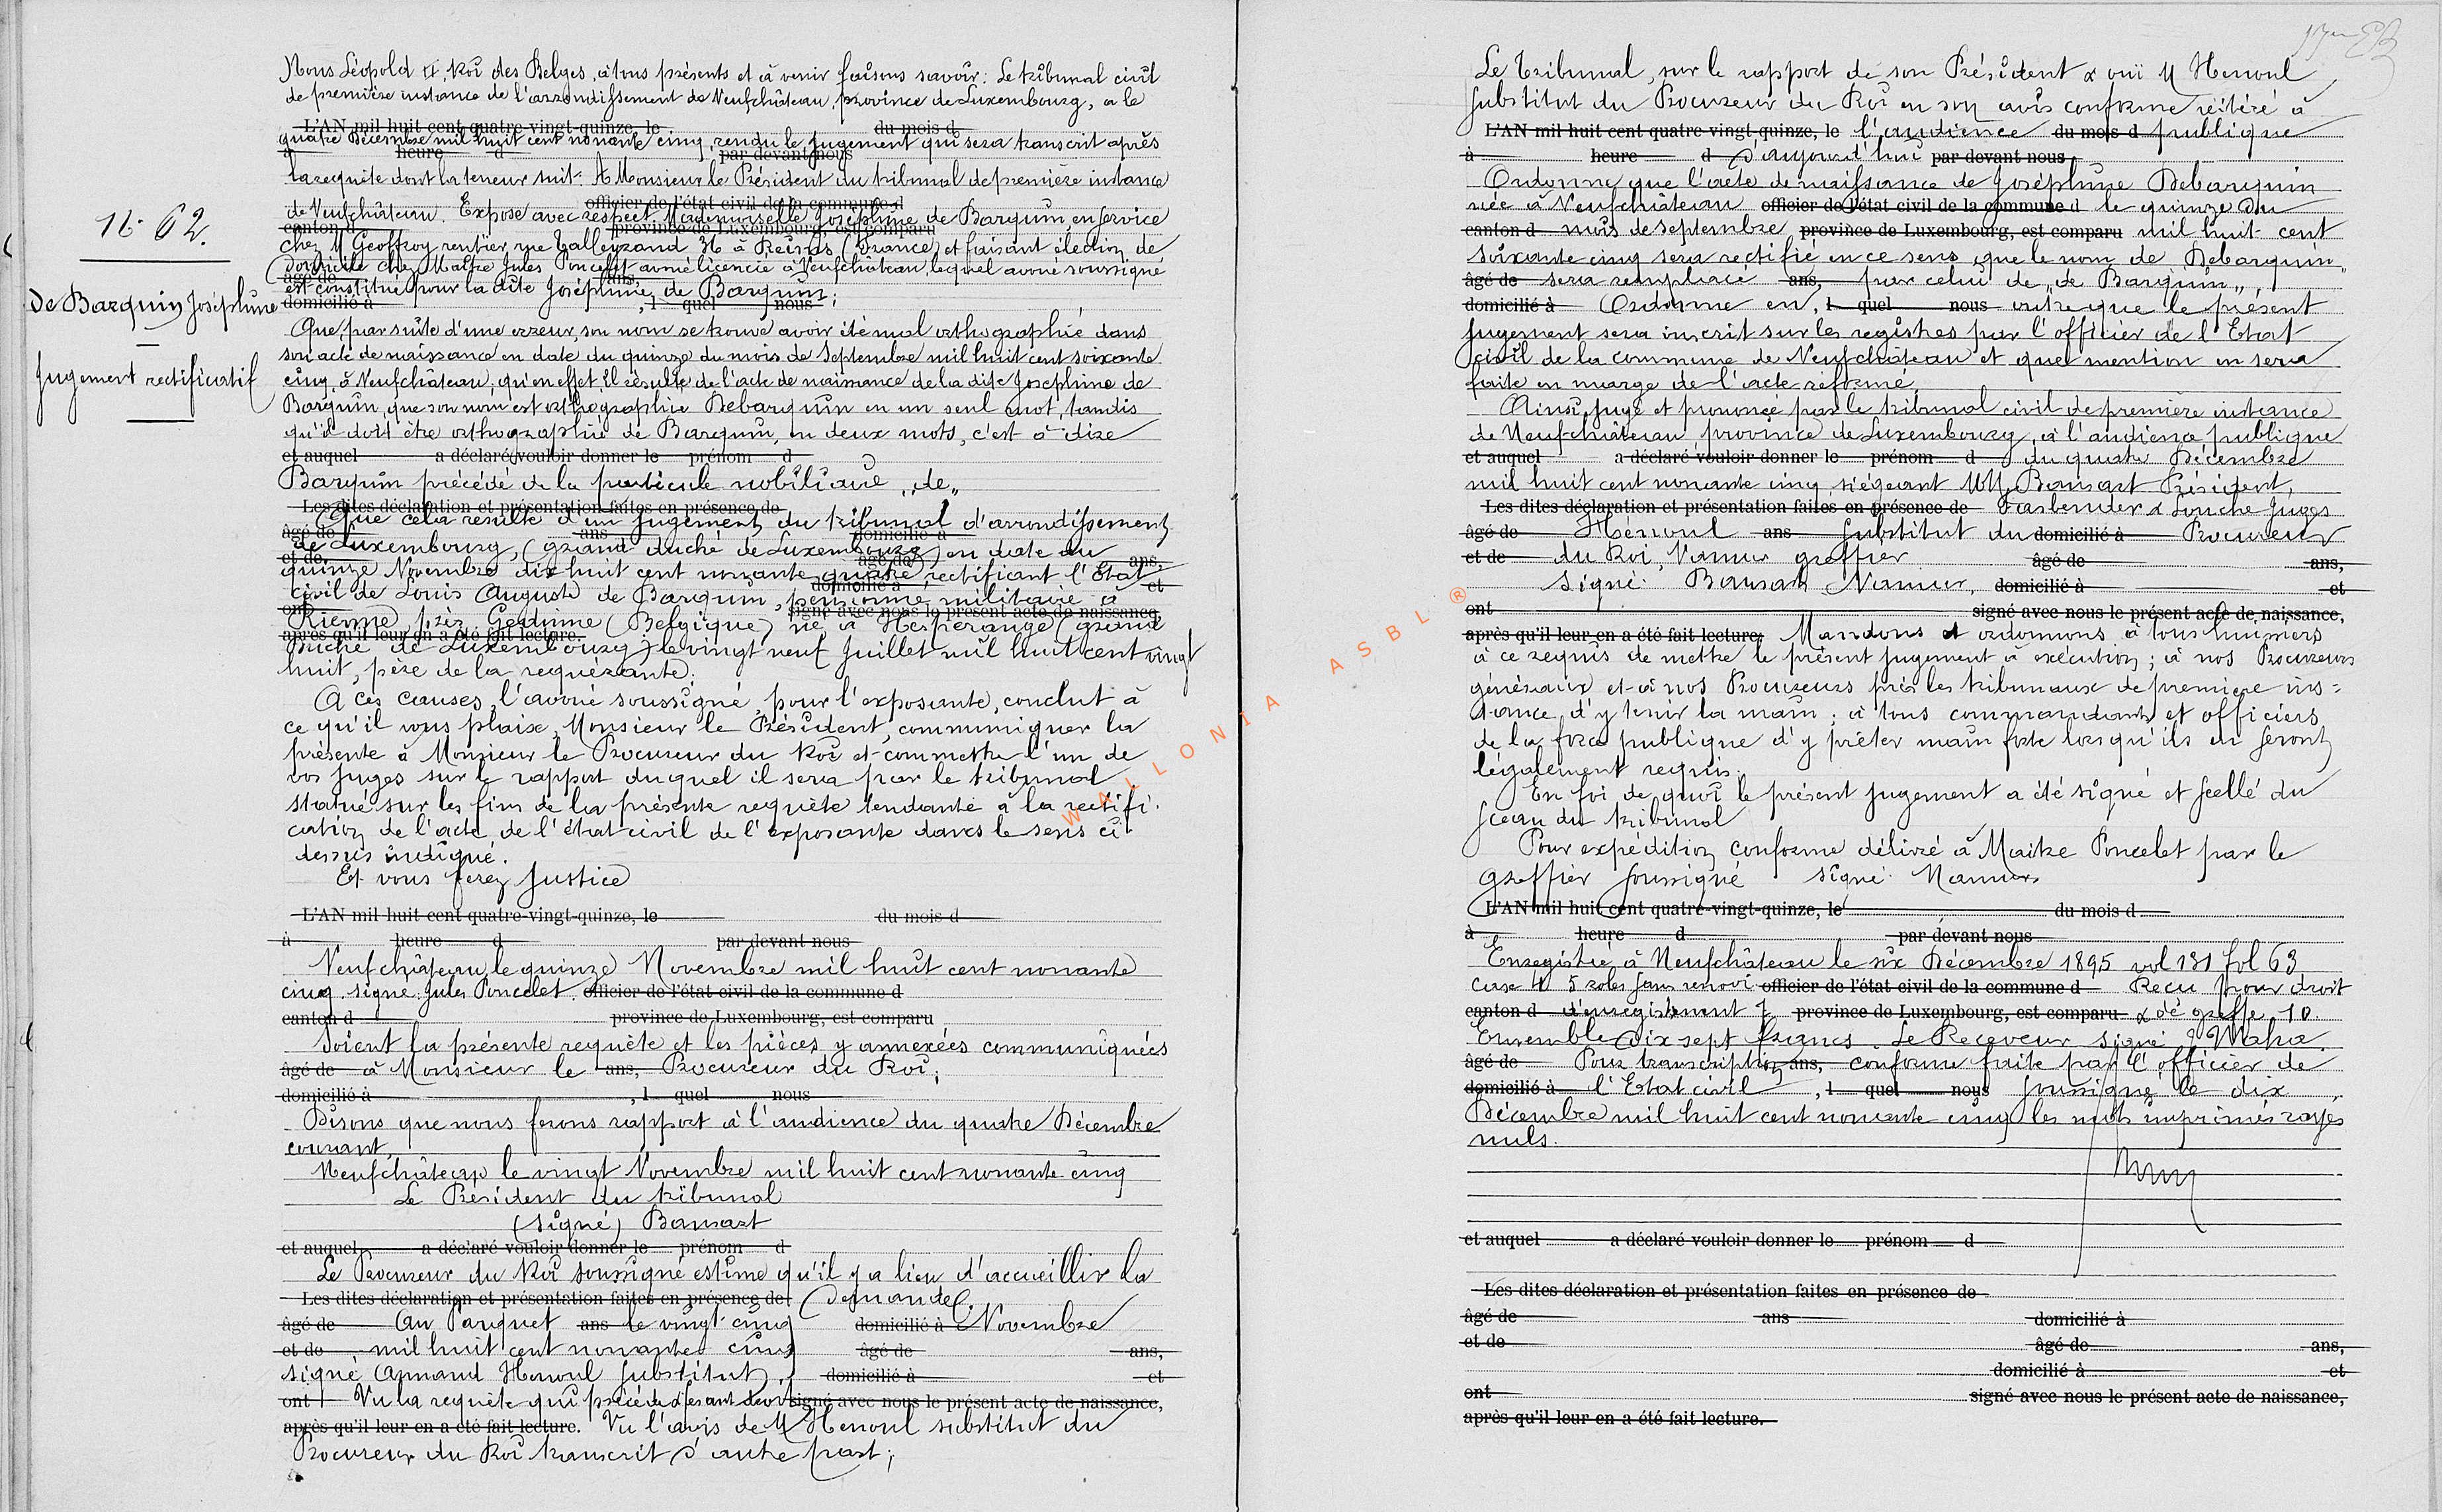 N. 62.
de Barquin Joséphine
Jugement rectificatif
Nous Léopold II, Roi des Belges, à tous présents et à venir faisons savoir: Le tribunal civil
de première instance de l'arrondissement de Neufchâteau, province de Luxembourg, a le
L'AN mil huit cent quatre-vingt-quinze, le du mois d
quatre Décembre mil huit cent nonante cinq, rendu le jugement qui sera transcrit après
à heure d par devant nous
la requête dont la teneur suit: A Monsieur le Président du tribunal de première instance
officier de l'état civil de la commune d
de Neufchâteau. Expose avec respect Mademoiselle Joséphine de Barquin, en service
canton d province de Luxembourg, est comparu
chez M Geoffroy rentier, rue Talleyrand 36 à Reims (France) et faisant élection de
domicile chez Maître Jules Poncelet avoué licencié à Neufchâteau, lequel avoué soussigné
âgé de ans,
est constitué pour la dite Joséphine de Barquin;
domicilié à , l quel nous
Que, par suite d'une erreur, son nom se trouve avoir été mal orthographié dans
son acte de naissance en date du quinze du mois de Septembre mil huit cent soixante
cinq, à Neufchâteau; qu'en effet il résulte de l'acte de naissance de la dite Joséphine de
Barquin, que son nom est orthographié Debarquin en un seul mot, tandis
qu'il doit être orthographié de Barquin, en deux mots, c'est à dire
et auquel a déclaré vouloir donner le prénom d
Barquin précédé de la particule nobiliaire „de„
Les dites déclaration et présentation faites en présence de
Que cela résulte d'un jugement du tribunal d'arrondissement
âgé de ans domicilié à
de Luxembourg, (grand duché de Luxembourg) en date du
et de âgé de ans,
quinze Novembre dix huit cent nonante quatre rectifiant l'Etat
domicilié à et
civil de Louis Auguste de Barquin, pensionné militaire à
ont signé avec nous le présent acte de naissance,
Rienne, près Gedinne (Belgique) né à Hesperange (grand
après qu'il leur en a été fait lecture.
Duché de Luxembourg) le vingt neuf Juillet mil huit cent vingt
huit, père de la requérante;
A ces causes, l'avoué soussigné, pour l'exposante, conclut à
ce qu'il vous plaise, Monsieur le Président, communiquer la
présente à Monsieur le Procureur du Roi et commettre l'un de
vos juges sur le rapport duquel il sera par le tribunal
statué sur les fins de la présente requête tendante à la rectifi-
cation de l'acte de l'état civil de l'exposante dans le sens ci-
dessus indiqué.
Et vous ferez justice
L'AN mil huit cent quatre-vingt-quinze, le du mois d
à heure d par devant nous
Neufchâteau, le quinze Novembre mil huit cent nonante
cinq. signé: Jules Poncelet. officier de l'état civil de la commune d
canton d province de Luxembourg, est comparu
Soient la présente requête et les pièces y annexées communiquées
âgé de à Monsieur le ans, Procureur du Roi;
domicilié à , l quel nous
Disons que nous ferons rapport à l'audience du quatre Décembre
courant,
Neufchâteau le vingt Novembre mil huit cent nonante cinq
Le Président du tribunal
(signé) Bansart
et auquel a déclaré vouloir donner le prénom d
Le Procureur du Roi soussigné estime qu'il y a lieu d'accueillir la
Les dites déclaration et présentation faites en présence de demande.
âgé de Au Parquet ans le vingt cinq domicilié à Novembre
et de mil huit cent nonante cinq âgé de ans,
signé Armand Henoul substitut. domicilié à et
ont Vu la requête qui précède signé avec nous le présent acte de naissance,
après qu'il leur en a été fait lecture. Vu l'avis de M Henoul substitut du
Procureur du Roi transcrit d'autre part;
Le Tribunal, sur le rapport de son Président & ouï M Henoul
substitut du Procureur du Roi en son avis conforme réitéré à
L'AN mil huit cent quatre-vingt-quinze, le l'audience du mois d publique
à heure d d'aujourd'hui par devant nous
Ordonne que l'acte de naissance de Joséphine Debarquin
née à Neufchâteau officier de l'état civil de la commune d le quinze du
canton d mois de septembre province de Luxembourg, est comparu mil huit cent
soixante cinq sera rectifié en ce sens que le nom de Debarquin
âgé de sera remplacé ans, par celui de „de Barquin„,
domicilié à Ordonne en , l quel nous outre que le présent
jugement sera inscrit sur les registres par l'officier de l'Etat
civil de la commune de Neufchâteau et que mention en sera
faite en marge de l'acte réformé.
Ainsi jugé et prononcé par le tribunal civil de première instance
de Neufchâteau, province de Luxembourg, à l'audience publique
et auquel a déclaré vouloir donner le prénom d du quatre Décembre
mil huit cent nonante cinq, siégeant MM. Bansart Président,
Les dites déclaration et présentation faites en présence de Fasbender & Louche Juges
âgé de Hénoul ans substitut du domicilié à Procureur
et de du Roi, Namur greffier âgé de ans,
signé: Bansart Namur, domicilié à et
ont signé avec nous le présent acte de naissance,
après qu'il leur en a été fait lecture. Mandons et ordonnons à tous huissiers
à ce requis de mettre le présent jugement à exécution; à nos Procureurs
généraux et à nos Procureurs près les tribunaux de première ins=
tance d'y tenir la main; à tous commandants et officiers
de la force publique d'y prêter main forte lorsqu'ils en seront
légalement requis.
En foi de quoi le présent jugement a été signé et scellé du
sceau du tribunal
Pour expédition conforme délivré à Maître Poncelet par le
greffier soussigné signé: Namur
L'AN mil huit cent quatre-vingt-quinze, le du mois d
à heure d par devant nous
Enregistré à Neufchâteau le six Décembre 1895 vol 131 fol 63
case 4 5 roles sans renvoi officier de l'état civil de la commune d Reçu pour droit
canton d d'enregistrement 7 province de Luxembourg, est comparu & de greffe, 10.
Ensemble Dix sept francs. Le Receveur signé
âgé de Pour transcription ans, conforme faite par l'officier de
domicilié à l'Etat civil , l quel nous soussigné le dix
Décembre mil huit cent nonante cinq les mots imprimés rayés
nuls.
et auquel a déclaré vouloir donner le prénom d
Les dites déclaration et présentation faites en présence de
âgé de ans domicilié à
et de âgé de ans,
domicilié à et
ont signé avec nous le présent acte de naissance,
après qu'il leur en a été fait lecture.
WALLONIA ASBL ®